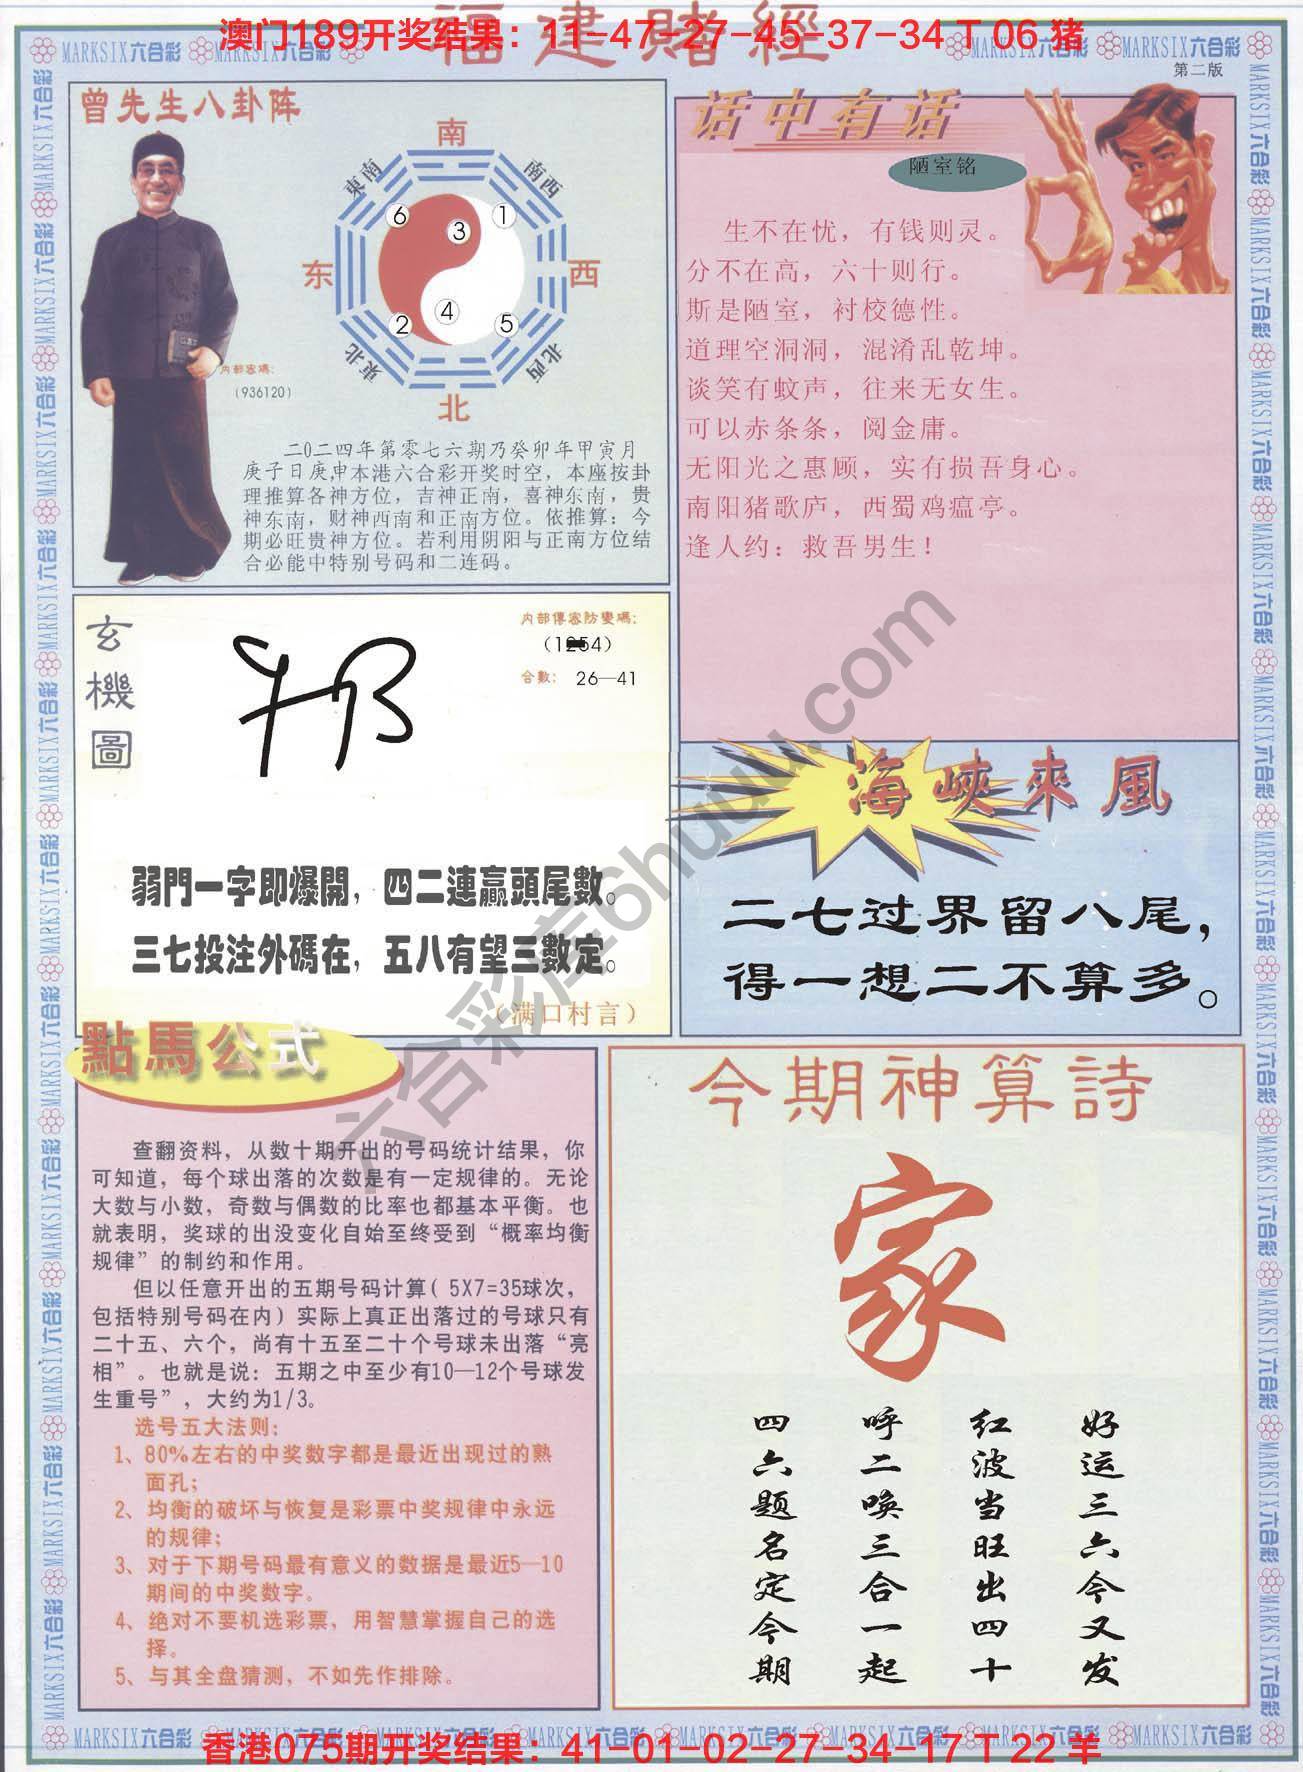 福建賭經
澳门189开奖结果：11-47-27-45-37-34 T 06 猪
MARKSIX六合彩
第二版
曾先生八卦阵
南
東南
南西
6
1
3
东
西
4
2
5
東北
北西
北
内部密碼：
（936120）
二0二四年第零七六期乃癸卯年甲寅月
庚子日庚申本港六合彩开奖时空，本座按卦
理推算各神方位，吉神正南，喜神东南，贵
神东南，财神西南和正南方位。依推算：今
期必旺贵神方位。若利用阴阳与正南方位结
合必能中特别号码和二连码。
话中有话
陋室铭
生不在忧，有钱则灵。
分不在高，六十则行。
斯是陋室，衬校德性。
道理空洞洞，混淆乱乾坤。
谈笑有蚊声，往来无女生。
可以赤条条，阅金庸。
无阳光之惠顾，实有损吾身心。
南阳猪歌庐，西蜀鸡瘟亭。
逢人约：救吾男生！
玄機圖
内部傳密防變碼：
合數： 26—41
弱門一字即爆開，四二連贏頭尾數。
三七投注外碼在，五八有望三數定。
（满口村言）
海峽來風
二七过界留八尾，
得一想二不算多。
點馬公式
查翻资料，从数十期开出的号码统计结果，你
可知道，每个球出落的次数是有一定规律的。无论
大数与小数，奇数与偶数的比率也都基本平衡。也
就表明，奖球的出没变化自始至终受到“概率均衡
规律”的制约和作用。
但以任意开出的五期号码计算（5X7=35球次，
包括特别号码在内）实际上真正出落过的号球只有
二十五、六个，尚有十五至二十个号球未出落“亮
相”。也就是说：五期之中至少有10—12个号球发
生重号”，大约为1/3。
选号五大法则：
1、80%左右的中奖数字都是最近出现过的熟
面孔；
2、均衡的破坏与恢复是彩票中奖规律中永远
的规律；
3、对于下期号码最有意义的数据是最近5—10
期间的中奖数字。
4、绝对不要机选彩票，用智慧掌握自己的选
择。
5、与其全盘猜测，不如先作排除。
今期神算詩
家
好运三六今又发
红波当旺出四十
呼二唤三合一起
四六题名定今期
六合彩库6huuu.com
香港075期开奖结果：41-01-02-27-34-17 T 22 羊